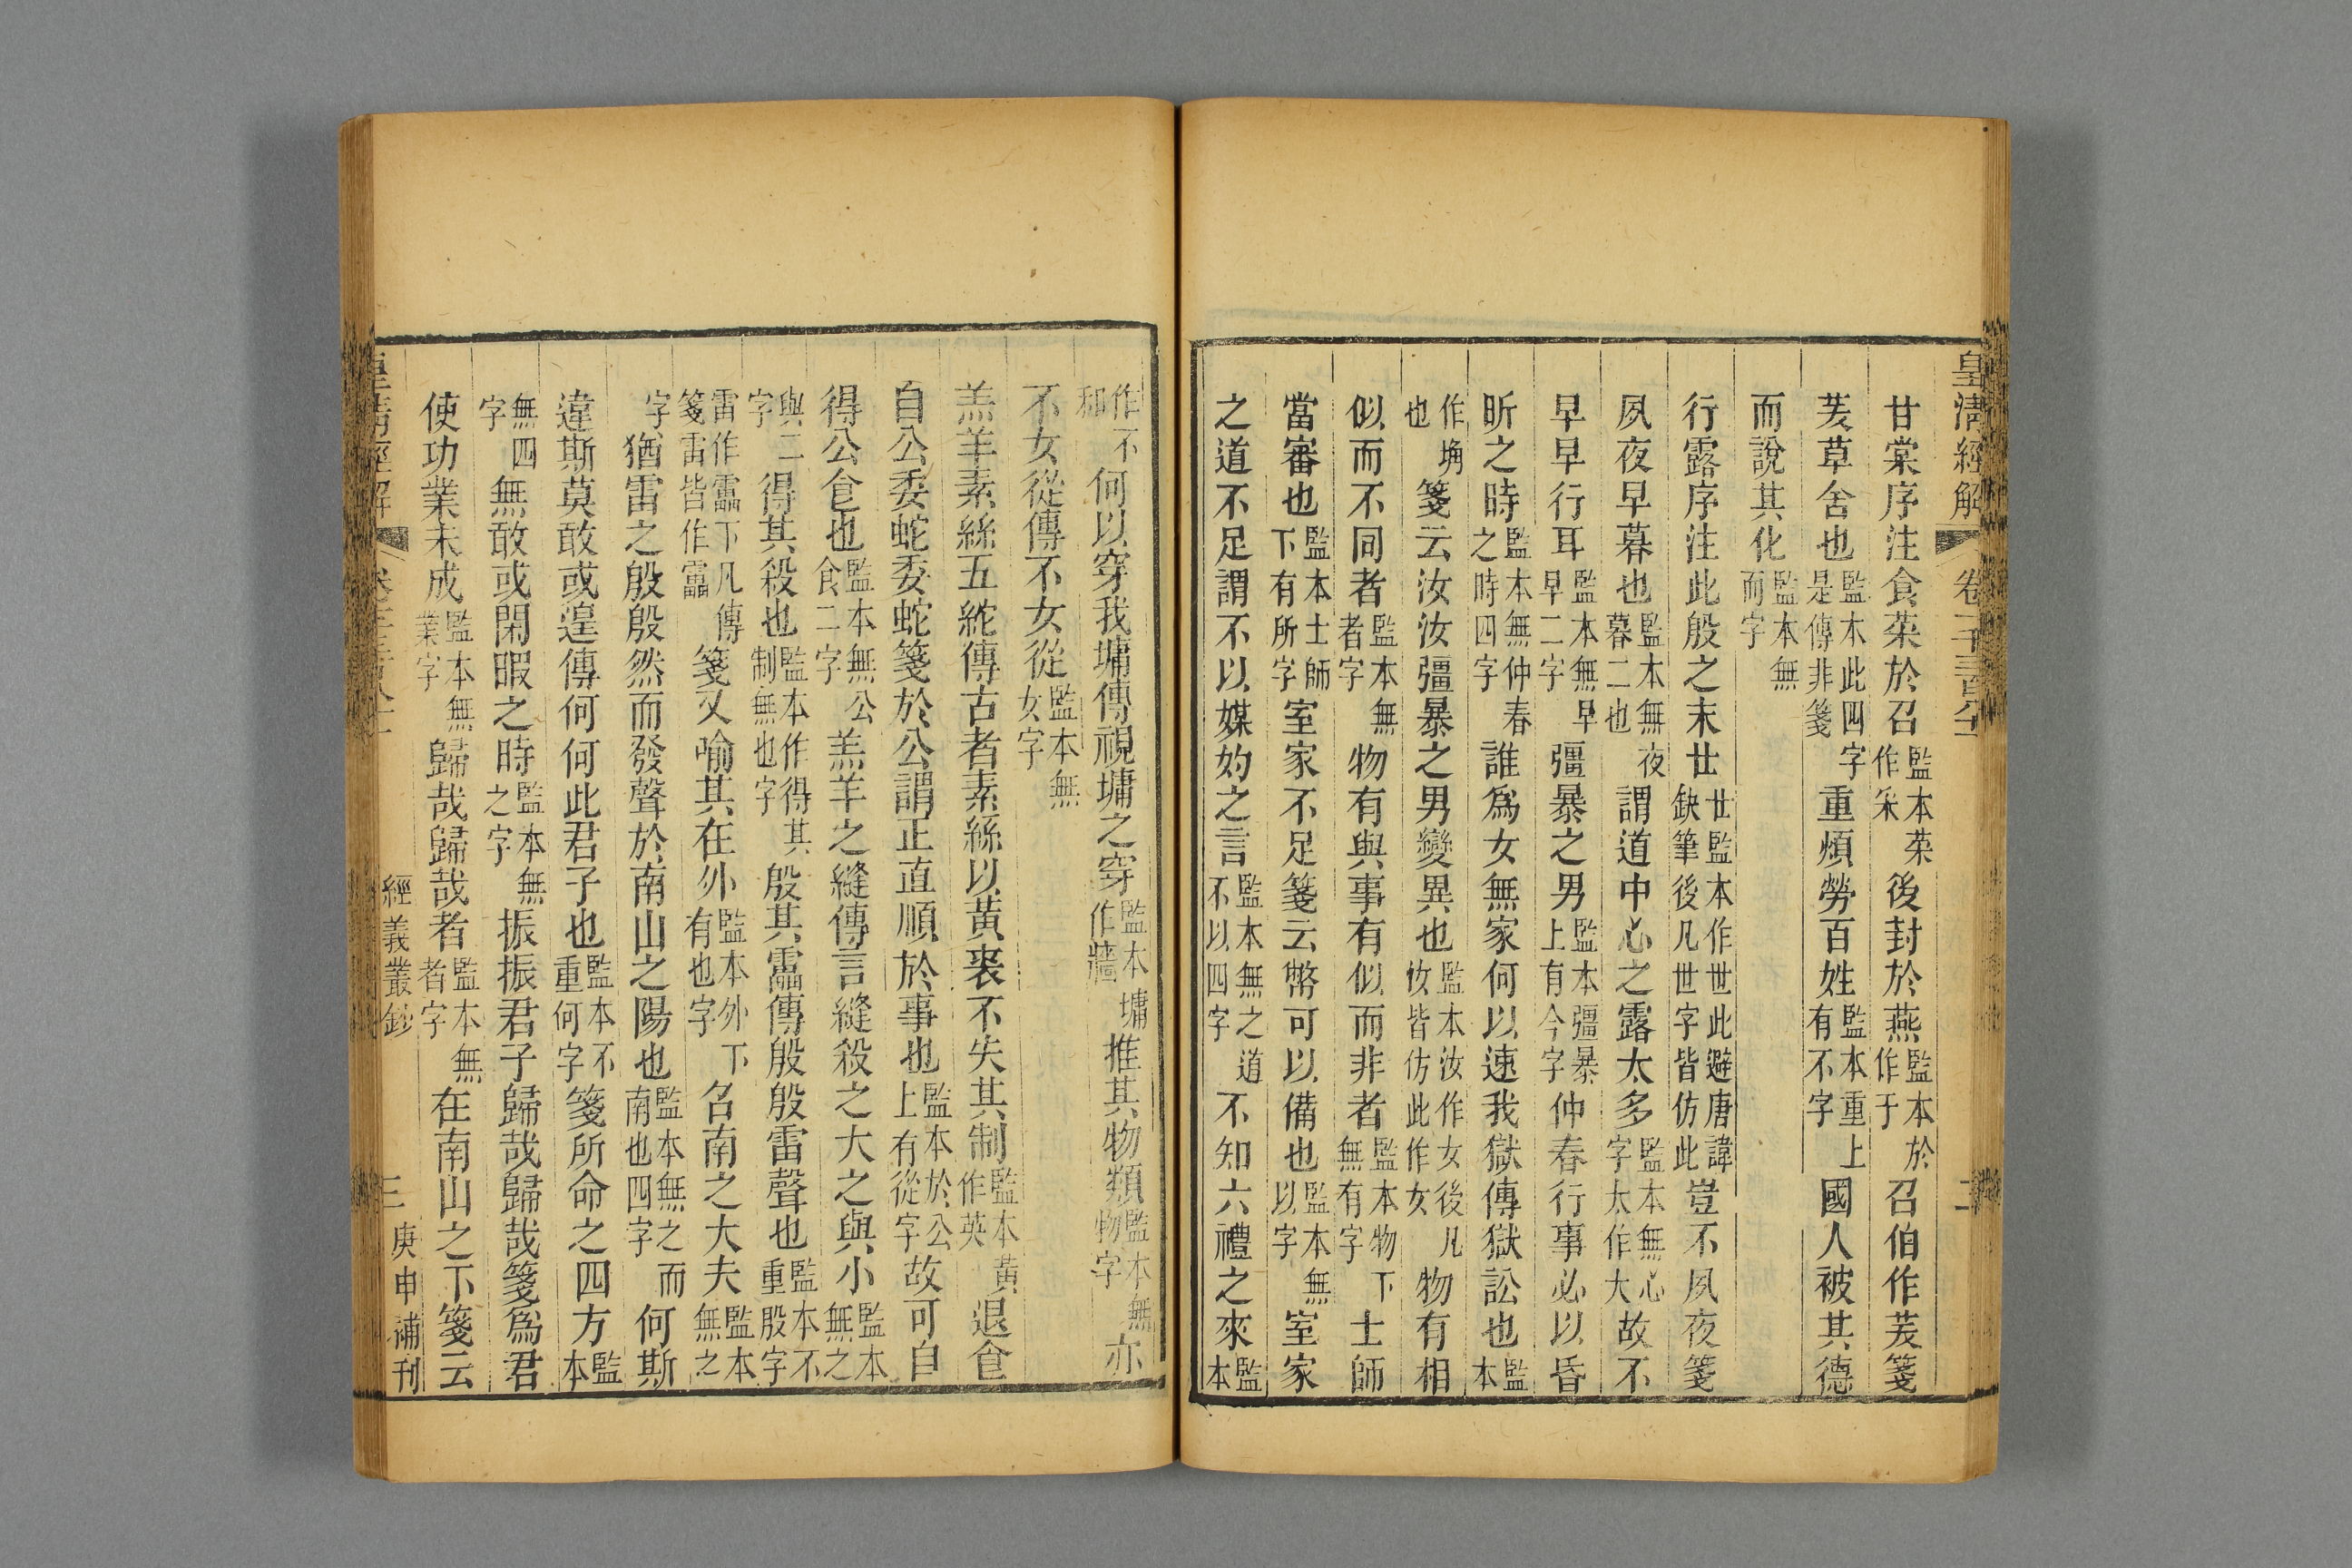 皇清經解
卷一千三百八十一
二
甘棠序注食菜於召監本菜作采後封於燕監本於作于召伯作茇箋
茇草舍也監本此四字是傳非箋重煩勞百姓監本重上有不字國人被其德
而說其化監本無而字
行露序注此殷之末世世監本作世此避唐諱缺筆後凡世字皆仿此豈不夙夜箋
夙夜早暮也監本無夜暮二也謂道中心之露太多監本無心字太作大故不
早早行耳監本無早早二字彊暴之男監本彊暴上有今字仲春行事必以昏
昕之時監本無仲春之時四字誰爲女無家何以速我獄傳獄訟也監本
作埆也箋云汝汝彊暴之男變異也監本汝作女後凡汝皆仿此作女物有相
似而不同者監本無者字物有與事有似而非者監本物下無有字士師
當審也監本士師下有所字室家不足箋云幣可以備也監本無以字室家
之道不足謂不以媒妁之言監本無之道不以四字不知六禮之來監本
作不和何以穿我墉傳視墉之穿監本墉作牆推其物類監本無物字亦
不女從傳不女從監本無女字
羔羊素絲五紽傳古者素絲以黃裘不失其制監本黃作英退食
自公委蛇委蛇箋於公謂正直順於事也監本於公上有從字故可自
得公食也監本無公食二字羔羊之縫傳言縫殺之大之與小監本無之
與二字得其殺也監本作得其制無也字殷其靁傳殷殷雷聲也監本不重殷字
雷作靁下凡傳箋雷皆作靁箋又喻其在外監本外下有也字召南之大夫監本無之
字猶雷之殷殷然而發聲於南山之陽也監本無之而南也四字何斯
違斯莫敢或遑傳何何此君子也監本不重何字箋所命之四方監本
無四字無敢或閑暇之時監本無之字振振君子歸哉歸哉箋爲君
使功業未成監本無業字歸哉歸哉者監本無者字在南山之下箋云
皇清經解
經義叢鈔
三
庚申補刊